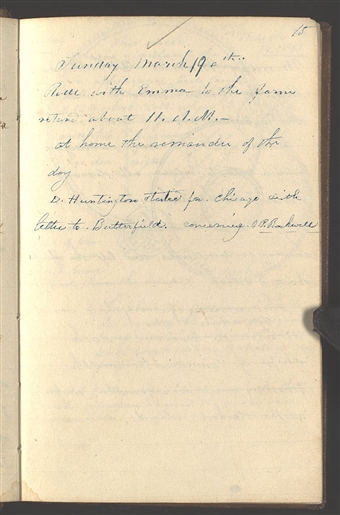 15
Sunday March 19th
Rode with Emma to the farm
return about 11. A.M.-
at home the remainder of the
day
D. Huntington started for Chicago with
letter to Butterfield. concerning O P. Rockwell